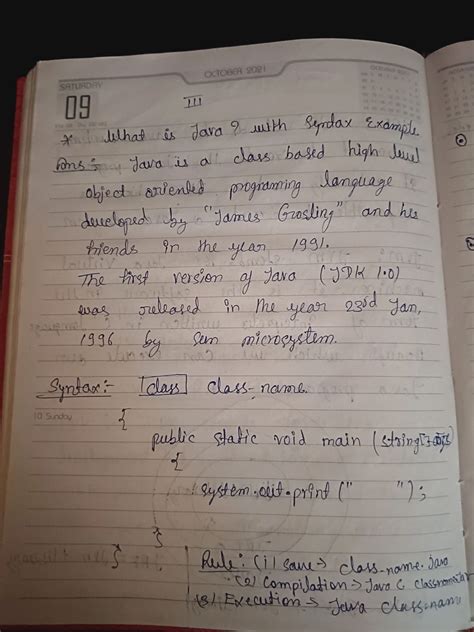 OCTOBER 2021
SATURDAY
09
III
* What is Java? with Syntax Example
Ans:- Java is a class based high level
object oriented programing language
developed by "James Grosling" and his
friends in the year 1991.
The first version of Java (JDK 1.0)
was released in the year 23rd Jan,
1996 by Sun microsystem.
Syntax:- class class-name
10 Sunday
{
public static void main (string
{
system.out.print (" ");
}
} Rule: (i) save → class-name.Java
(2) Compilation → Java C
(3) Execution → Java class-name